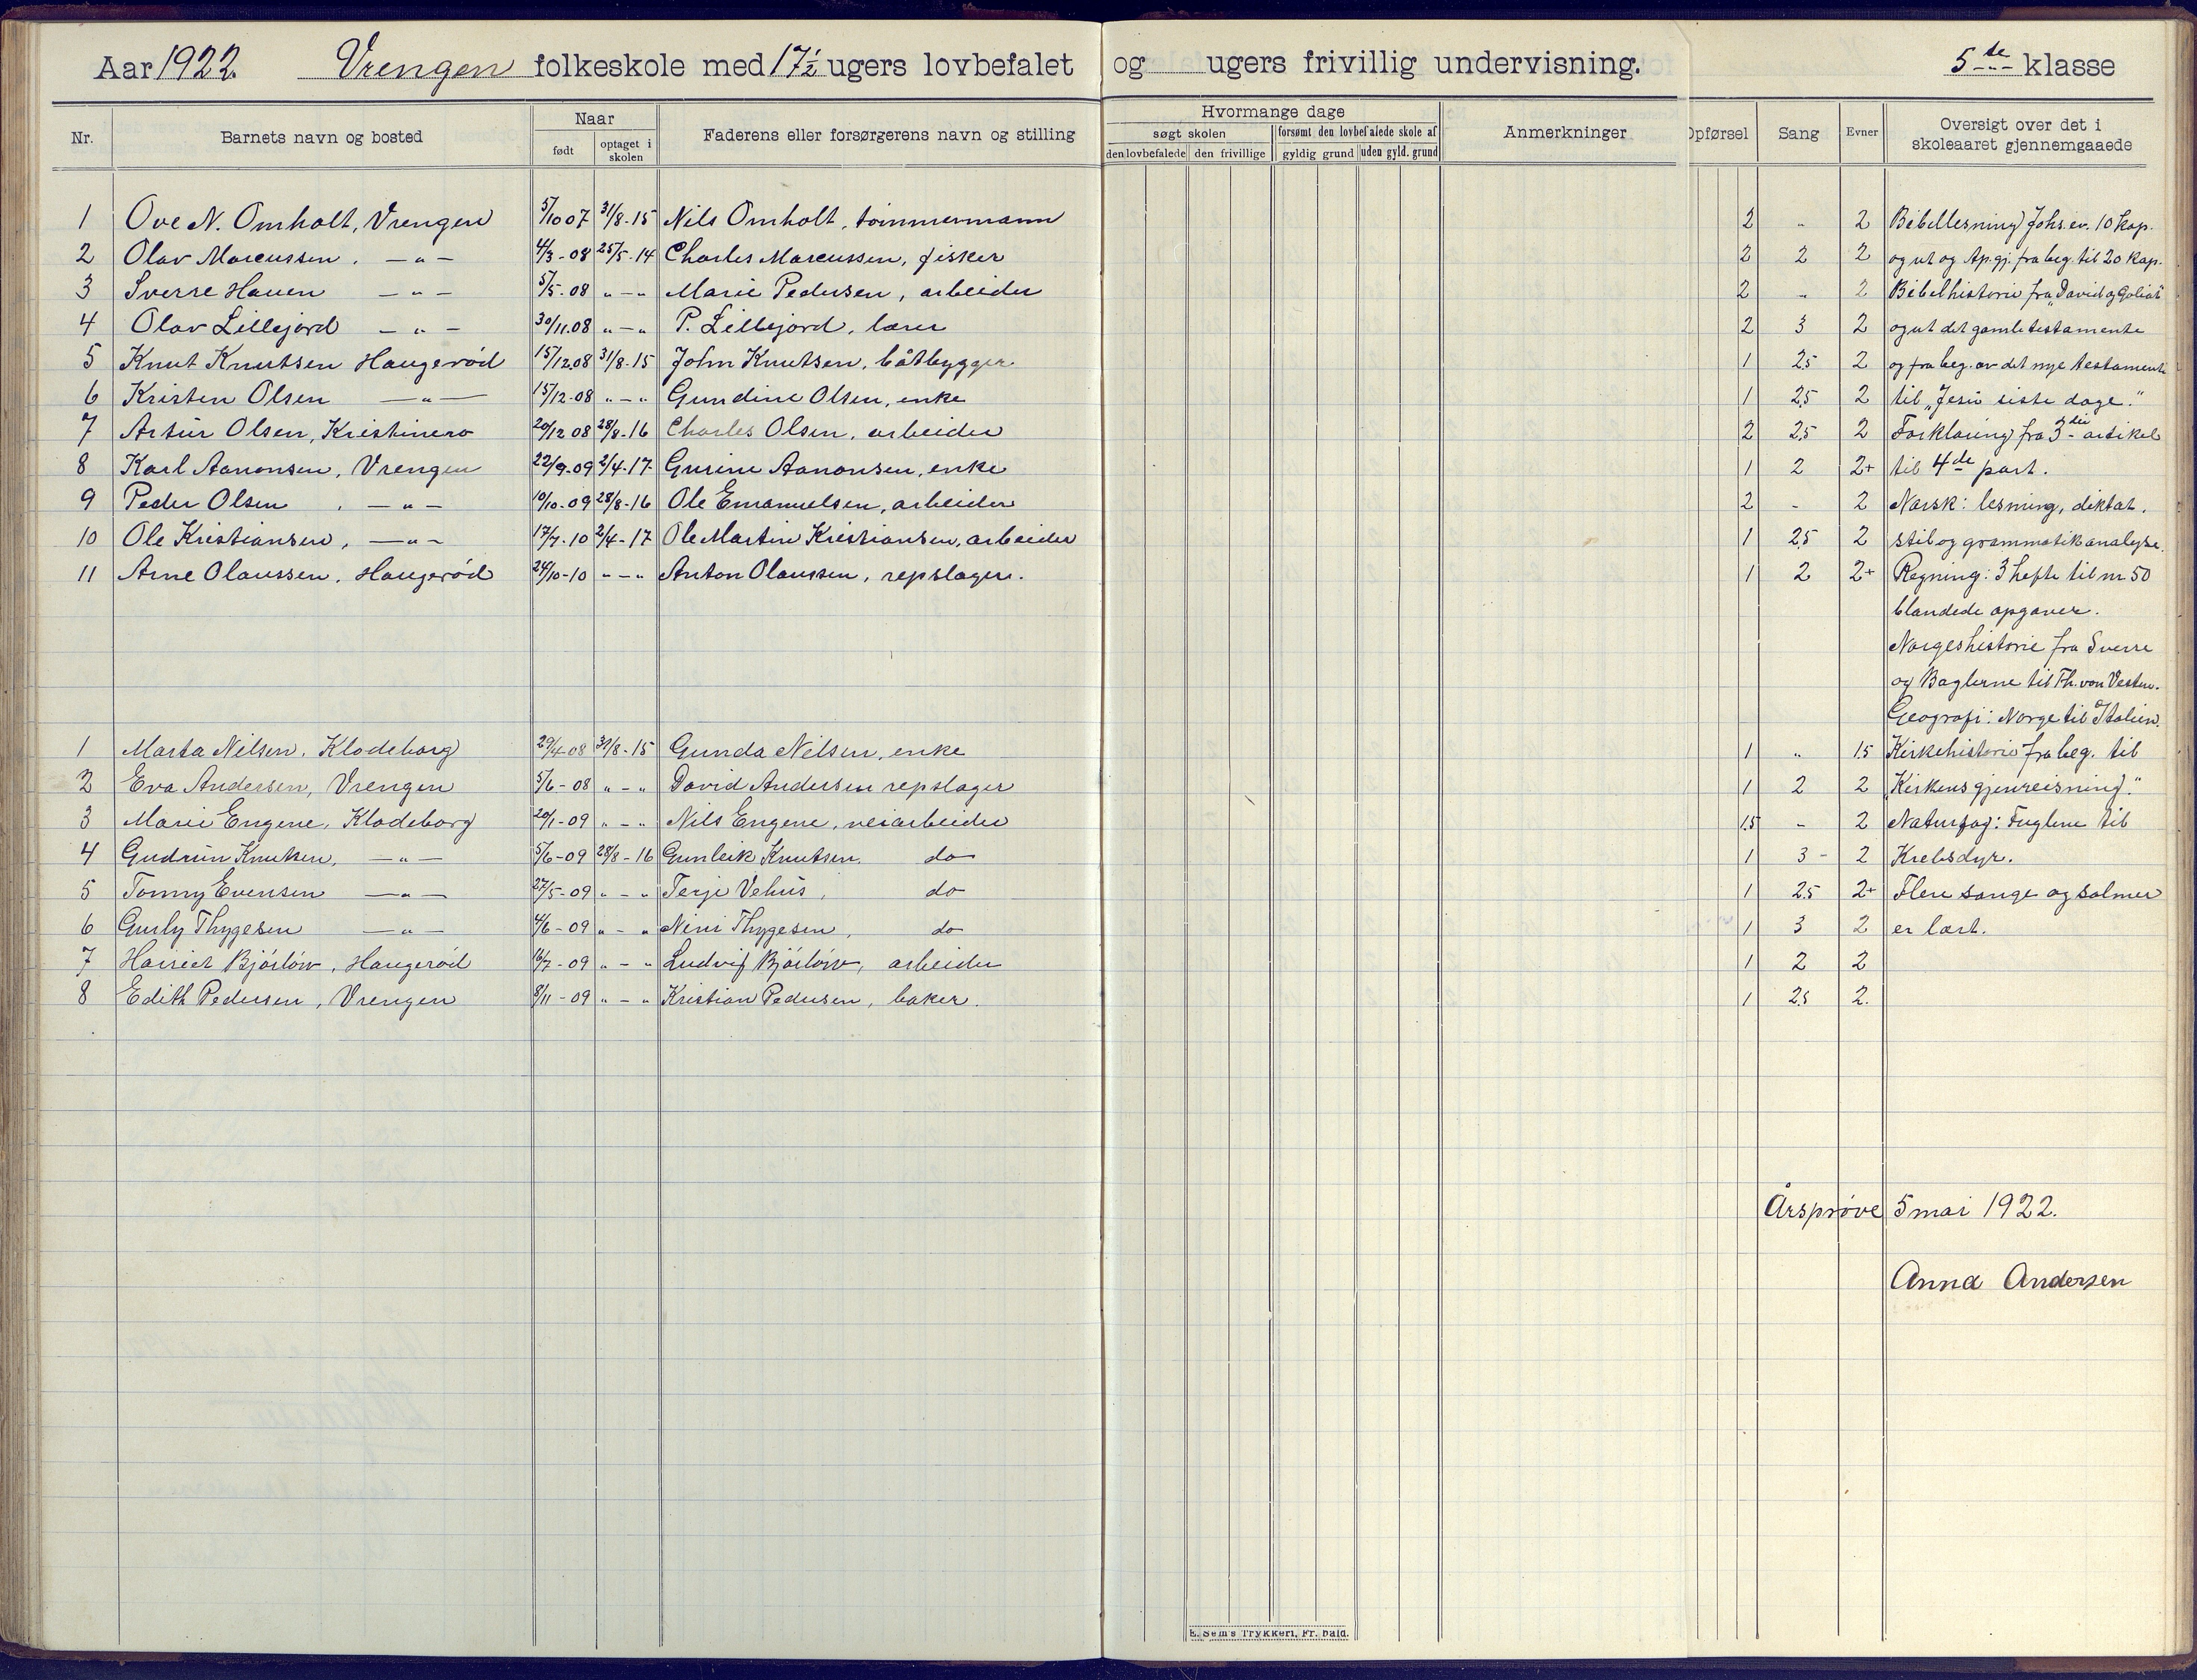 Aar 1922. Vrengen folkeskole med 17½ ugers lovbefalet og ugers frivillig undervisning. 5te klasse
Nr. Barnets navn og bosted Naar født optaget i skolen Faderens eller forsørgerens navn og stilling Hvormange dage søgt skolen den lovbefalede den frivillige forsømt den lovbefalede skole af gyldig grund uden gyld. grund Anmerkninger Opførsel Sang Evner Oversigt over det i skoleaaret gjennemgaaede
1 Ove N. Omholt, Vrengen 5/10 07 31/8-15 Nils Omholt, tømmermann 2 " 2 Bibellesning Johs. ev. 10 kap.
2 Olav Marcussen, -"- 4/3-08 25/5-14 Charles Marcussen, fisker 2 2 2 og ut og Ap.gj. fra beg. til 20 kap.
3 Sverre Hauen -"- 5/5-08 "-" Marie Pedersen, arbeider 2 " 2 Bibelhistorie fra „David og Goliat"
4 Olav Lillejord -"- 30/11.08 "-" P. Lillejord, lærer 2 3 2 og ut det gamle testamente
5 Knut Knutsen Haugerød 15/12.08 31/8-15 John Knutsen, båtbygger 1 2.5 2 og fra beg. av det nye testamente
6 Kristen Olsen -"- 15/12-08 "-" Gundine Olsen, enke 1 2.5 2 til „Jesu siste dage."
7 Artur Olsen, Kristinero 20/12 08 28/8-16 Charles Olsen, arbeider 2 2.5 2 Forklaring fra 3die artikel
8 Karl Aanonsen, Vrengen 22/9-09 2/4-17 Gurine Aanonsen, enke 1 2 2+ til 4de part.
9 Peder Olsen, -"- 10/10-09 28/8-16 Ole Emanuelsen, arbeider 2 - 2 Norsk: lesning, diktat,
10 Ole Kristiansen, -"- 17/7-10 2/4-17 Ole Martin Kristiansen, arbeider 1 2.5 2 stil og grammatikanalyse.
11 Arne Olaussen, Haugerød 24/10-10 "-" Anton Olaussen, repslager. 1 2 2+ Regning: 3 hefte til nr 50
blandede opgaver.
Norgeshistorie fra Sverre
og Baglerne til Th. von Vesten.
Geografi: Norge til Italien.
1 Marta Nilsen, Klodeborg 29/4-08 31/8-15 Gunda Nilsen, enke 1 " 1.5 Kirkehistorie fra beg. til
2 Eva Andersen, Vrengen 5/6-08 "-" David Andersen repslager 1 2 2 „Kirkens gjenreisning."
3 Marie Engene, Klodeborg 20/1-09 "-" Nils Engene, veiarbeider 1.5 - 2 Naturfag: Fuglene til
4 Gudrun Knutsen, -"- 5/6-09 28/8-16 Gunleik Knutsen do 1 3- 2 Krebsdyr.
5 Tonny Evensen -"- 27/5-09 "-" Terje Vehus, do 1 2.5 2+ Flere sange og salmer
6 Gurly Thygesen -"- 4/6-09 "-" Nini Thygesen, do 1 3 2 er lært.
7 Harriet Bjørløw, Haugerød 16/7-09 "-" Ludvig Bjørløw, arbeider 1 2 2
8 Edith Pedersen, Vrengen 8/11-09 "-" Kristian Pedersen, baker. 1 2.5 2.
Årsprøve 5 mai 1922.
Anna Andersen
E. Sem's Trykkeri, Fr.hald.